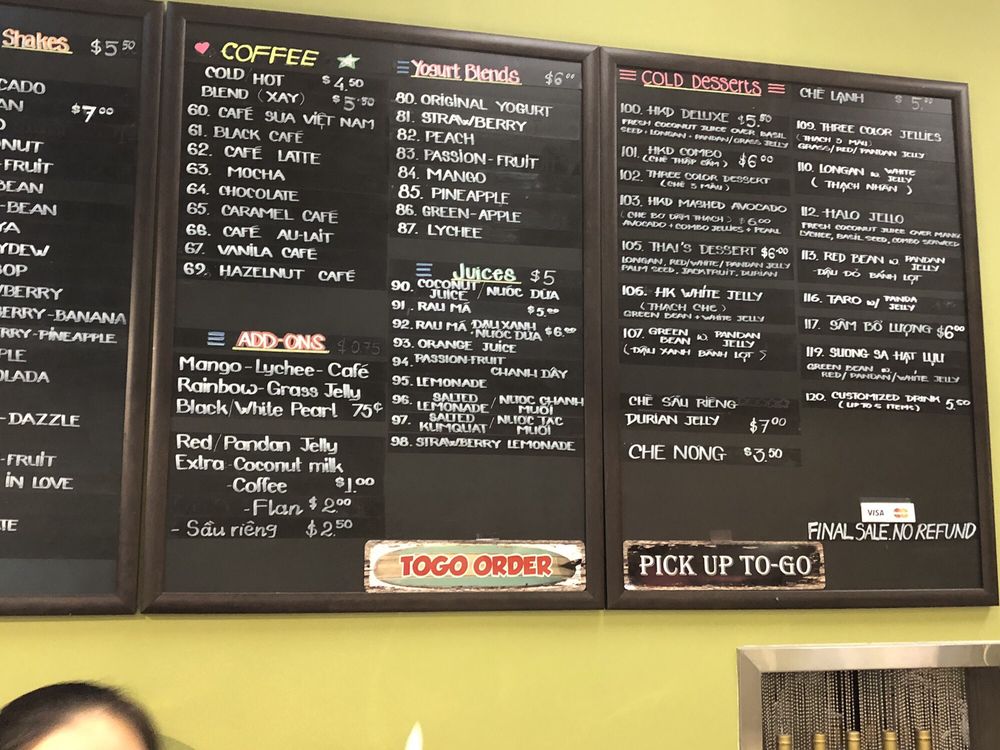 Shakes $5.50
CADO
AN $7.00
O
NUT
-FRUIT
BEAN
-BEAN
YA
YDEW
SOP
/BERRY
BERRY-BANANA
RRY-PINEAPPLE
PLE
OLADA
-DAZZLE
-FRUIT
IN LOVE
TE
COFFEE
COLD HOT $4.50
BLEND (XAY) $5.50
60. CAFÉ SUA VIỆT NAM
61. BLACK CAFÉ
62. CAFÉ LATTE
63. MOCHA
64. CHOCOLATE
65. CARAMEL CAFÉ
66. CAFÉ AU-LAIT
67. VANILA CAFÉ
69. HAZELNUT CAFÉ
ADD-ONS $0.75
Mango-Lychee-Café
Rainbow-Grass Jelly
Black/White Pearl 75¢
Red/Pandan Jelly
Extra-Coconut milk
-Coffee $1.00
-Flan $2.00
-Sầu riêng $2.50
Yogurt Blends $6.00
80. ORIGINAL YOGURT
81. STRAWBERRY
82. PEACH
83. PASSION-FRUIT
84. MANGO
85. PINEAPPLE
86. GREEN-APPLE
87. LYCHEE
Juices $5
90. COCONUT JUICE / NƯỚC DỪA
91. RAU MÁ $5.50
92. RAU MÁ ĐẬU XANH NƯỚC DỪA $6.00
93. ORANGE JUICE
94. PASSION-FRUIT
CHANH DÂY
95. LEMONADE
96. SALTED LEMONADE / NƯỚC CHANH MUỐI
97. SALTED KUMQUAT / NƯỚC TẮC MUỐI
98. STRAWBERRY LEMONADE
TOGO ORDER
COLD Desserts
100. HKD DELUXE $5.50
FRESH COCONUT JUICE OVER BASIL
SEED + LONGAN + PANDAN/GRASS JELLY
101. HKD COMBO
(CHÈ THẬP CẨM) $6.00
102. THREE COLOR DESSERT
(CHÈ 3 MÀU)
103. HKD MASHED AVOCADO
(CHÈ BƠ DẦM THẠCH) $6.00
AVOCADO + COMBO JELLIES + PEARL
105. THAI'S DESSERT $6.00
LONGAN, RED/WHITE/PANDAN JELLY
PALM SEED, JACKFRUIT, DURIAN
106. HK WHITE JELLY
(THẠCH CHÈ)
GREEN BEAN + WHITE JELLY
107. GREEN BEAN w. PANDAN JELLY
(ĐẬU XANH BÁNH LỌT)
CHÈ SẦU RIÊNG
DURIAN JELLY $7.00
CHE NONG $3.50
PICK UP TO-GO
CHÈ LẠNH $5.
109. THREE COLOR JELLIES
(THẠCH 3 MÀU)
GRASS/RED/PANDAN JELLY
110. LONGAN w. WHITE JELLY
(THẠCH NHÃN)
112. HALO JELLO
FRESH COCONUT JUICE OVER MANGO
LYCHEE, BASIL SEED, COMBO SEAWEED
113. RED BEAN w. PANDAN JELLY
-ĐẬU ĐỎ BÁNH LỌT
116. TARO w/ PANDA JELLY
117. SÂM BỔ LƯỢNG $6.00
119. SUONG SA HẠT LỰU
GREEN BEAN w.
RED/PANDAN/WHITE JELLY
120. CUSTOMIZED DRINK 5.50
(UP TO 5 ITEMS)
VISA
FINAL SALE. NO REFUND